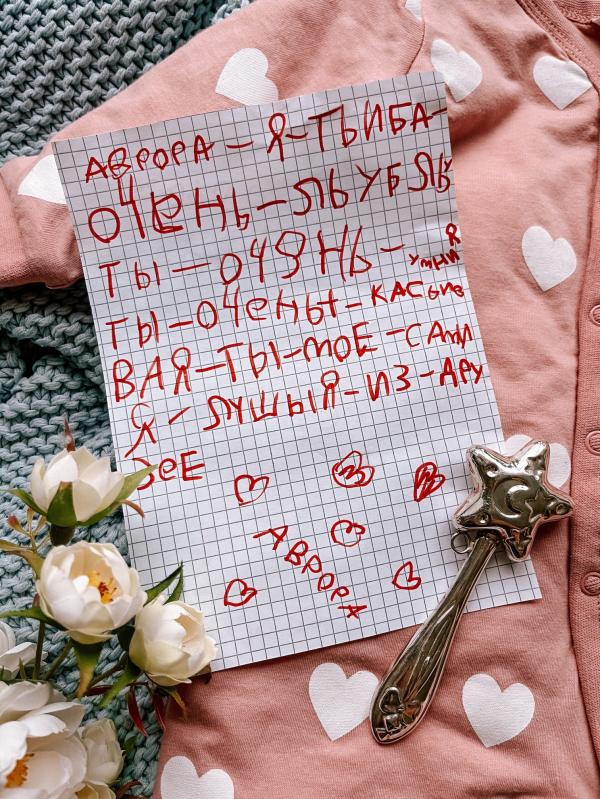 АВРОРА – Я – ТЫИБА –
ОЧЕНЬ – ЛЬУБЛЬ
ТЫ – ОЧЯНЬ – УМНИ Я
ТЫ – ОЧЕНЫ – КАСЫВЕ
ВАЯ – ТЫ – МОЕ – САМА
Я – ЛУШЫЯ – ИЗ – ДРУ
ЗЕЕ
АВРОРА